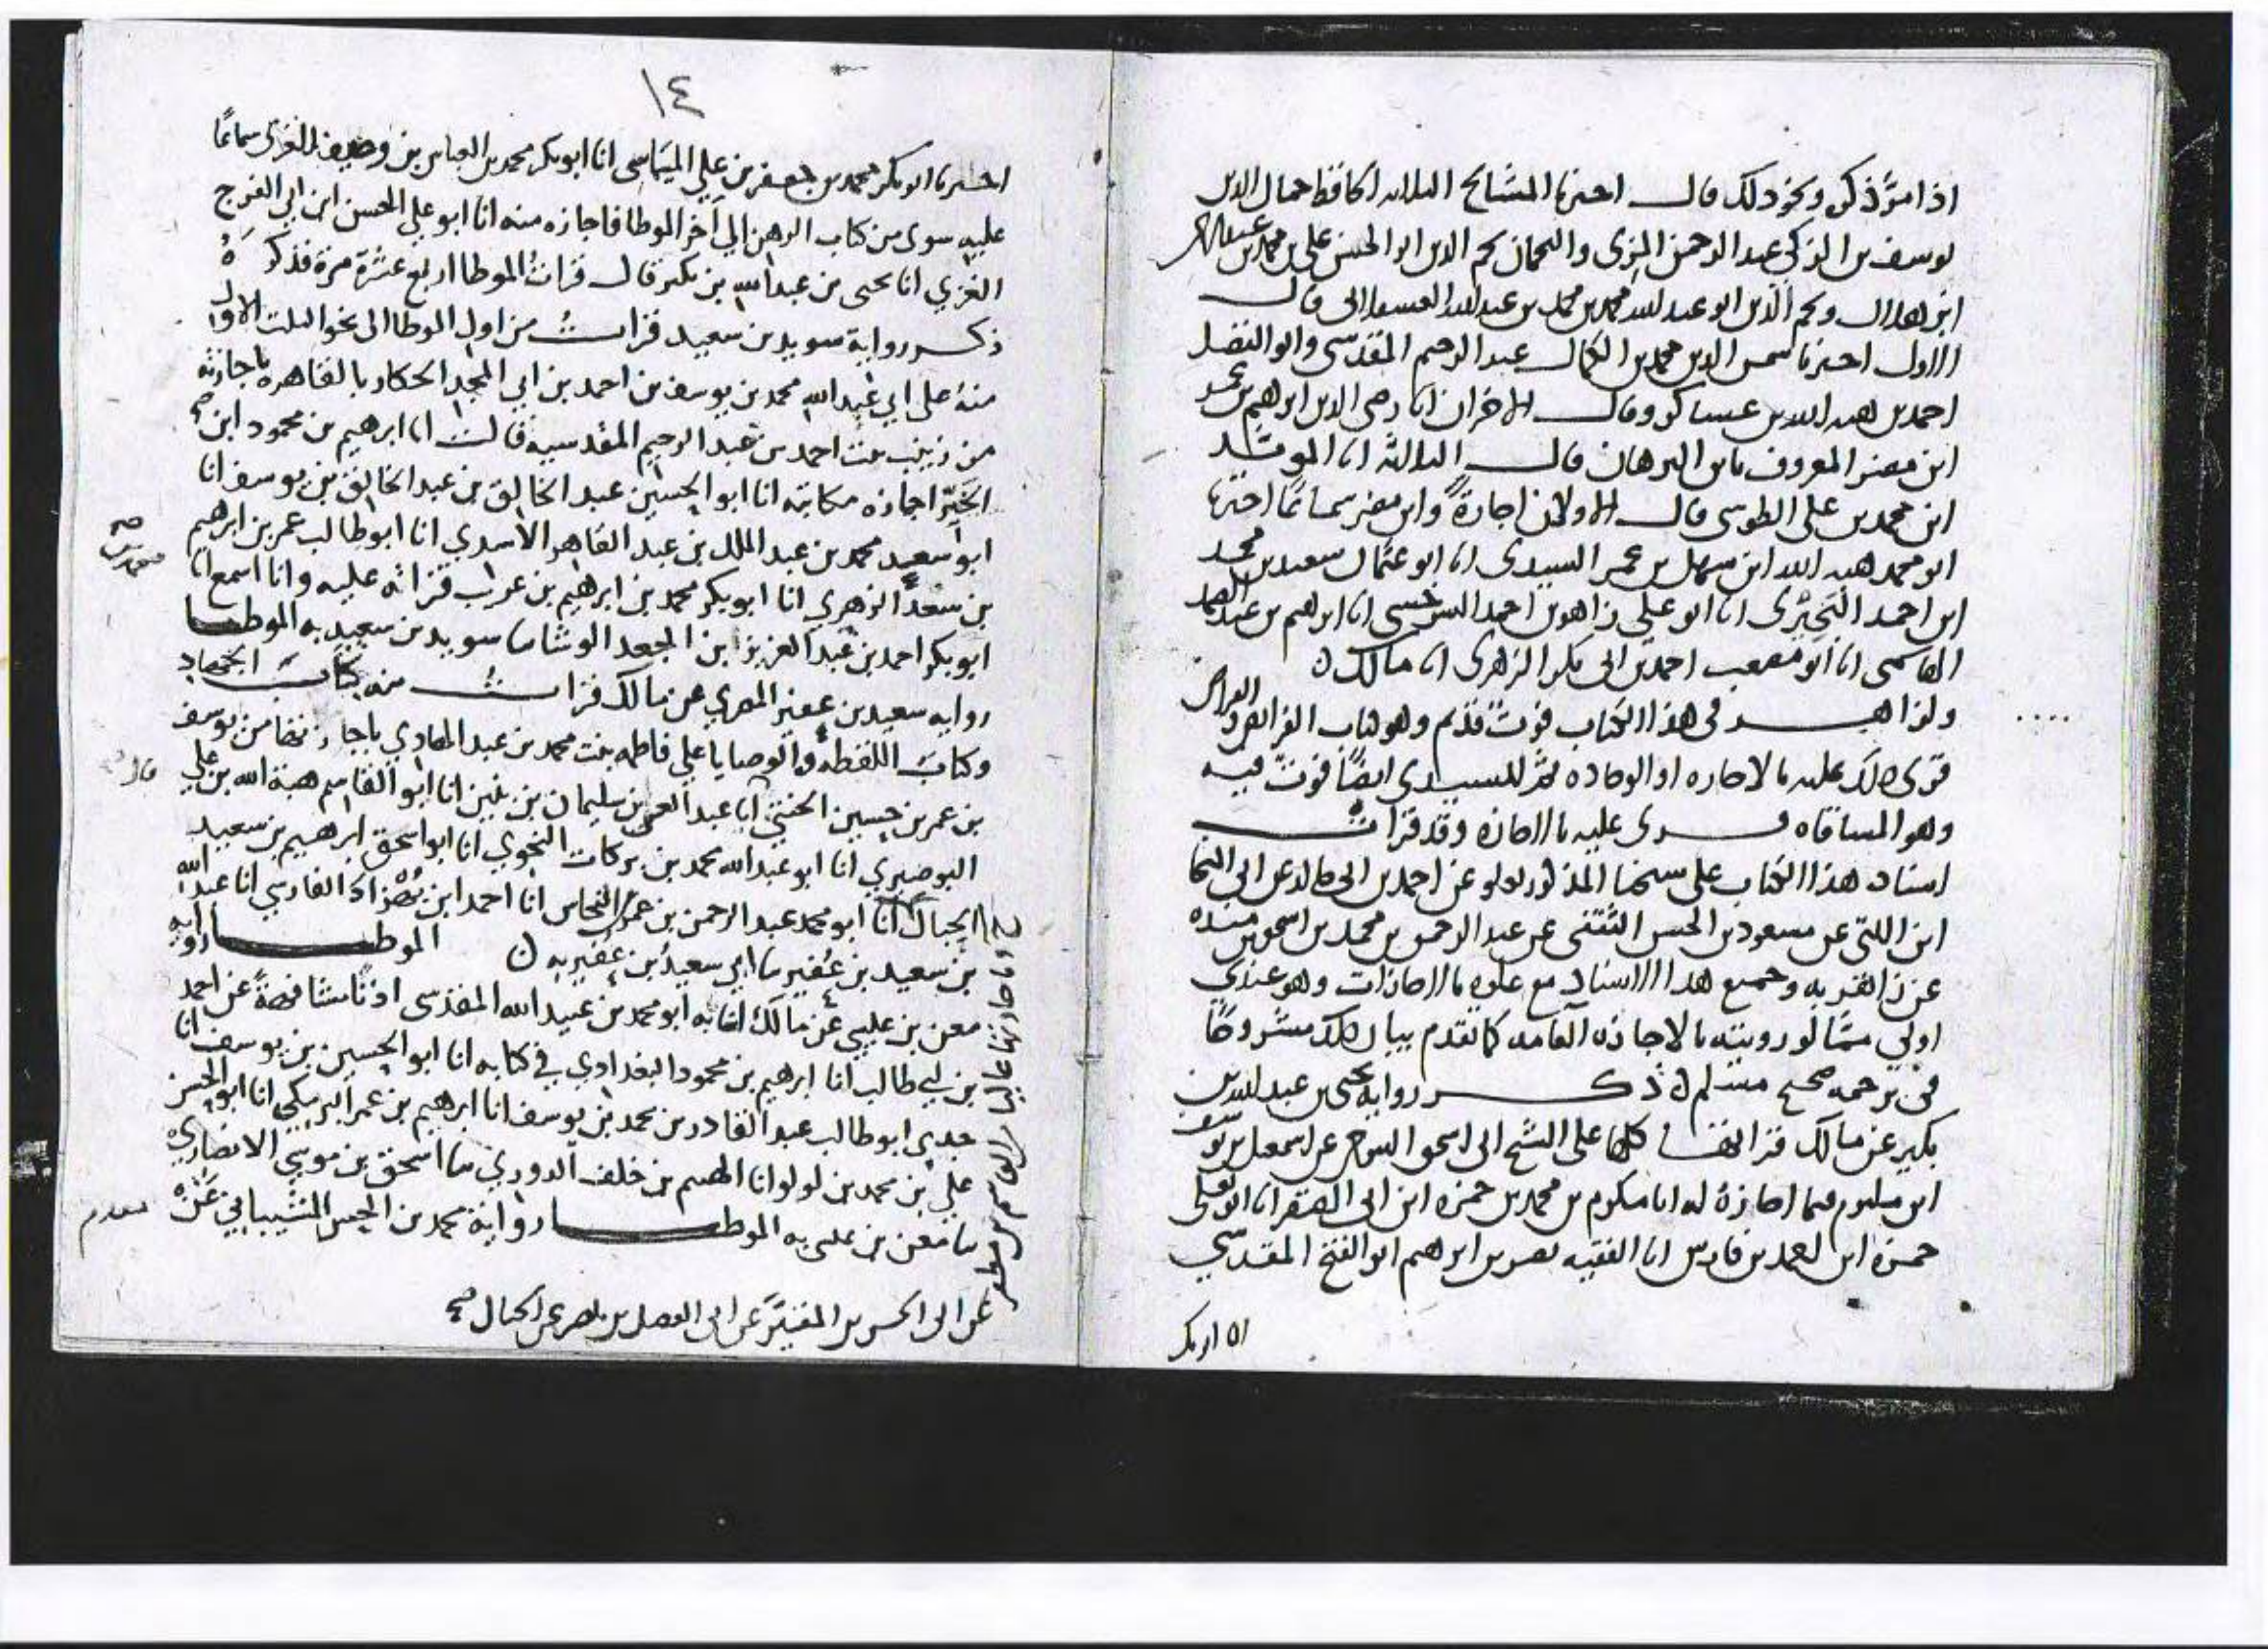 اذا مر ذكره ونحو ذلك قال اخبرنا المشايخ الثلاثة الحافظ جمال الدين
يوسف بن الزكي عبد الرحمن المزي والنجمان نجم الدين ابو الحسن علي بن محمد بن
ابن هلال ونجم الدين ابو عبد الله محمد بن محمد بن عبد الله العسقلاني قال
الاول اخبرنا شمس الدين محمد بن الكمال عبد الرحيم المقدسي وابو الفضل
احمد بن هبة الله بن عساكر وقال الاخران انا رضي الدين ابرهيم بن عمر
ابن مضر المعروف بابن البرهان قال الثلاثة انا المويد
ابن محمد بن علي الطوسي قال الاولان اجازة وابن مضر سماعا اخبرنا
ابو محمد هبة الله ابن سهل بن عمر السيدي انا ابو عثمان سعيد بن محمد
ابن احمد البحيري انا ابو علي زاهر بن احمد السرخسي انا ابرهيم بن عبد الصمد
الهاشمي انا ابو مصعب احمد بن ابي بكر الزهري انا مالك ن
ولزاهر في هذا الكتاب فوت قديم وهو كتاب الفرائض
قرئ ذلك عليه بالاجازه او الوجاده ثم للسيدي ايضا فوت فيه
وهو المساقاه قرئ عليه بالاجازه وقد قرات
اسناد هذا الكتاب على شيخنا المذكور بعلو عن احمد بن ابي طالب عن ابي النجا
ابن اللتي عن مسعود بن الحسن الثقفي عن عبد الرحمن بن محمد بن اسحق بن منده
عن زاهر به وجميع هذا الاسناد مع علوه بالاجازات وهو عندي
اولى مما لو رويته بالاجازه العامه كما تقدم بيان ذلك مشروحا
في ترجمه صحيح مسلم ن ذكر رواية يحيى بن عبد الله بن
بكير عن مالك قراتها كلها على الشيخ ابي اسحق التنوخي عن اسمعيل بن يوسف
ابن مكتوم فيما اجازه له انا مكرم بن محمد بن حمزه ابن ابي الصقر انا ابو يعلى
حمزه ابن احمد بن فارس انا الفقيه نصر بن ابرهيم ابو الفتح المقدسي
انا ابو بكر
١٤
اخبرنا ابو بكر محمد بن جعفر بن علي الميماسي انا ابو بكر محمد بن العباس بن وصيف الغزي سماعا
عليه سوى من كتاب الرهن الي آخر الموطا فاجازه منه انا ابو علي الحسن ابن ابي الفرج
الغزي انا يحيى بن عبد الله بن بكير قال قرات الموطا اربع عشرة مرة فذكره
ذكر رواية سويد بن سعيد قرات من اول الموطا الى نحو الثلث الاول
منه على ابي عبد الله محمد بن يوسف بن احمد بن ابي المجد الحكار بالقاهره باجازته
من زينب بنت احمد بن عبد الرحيم المقدسيه قالت انا ابرهيم بن محمود ابن
الخير اجازه مكاتبه انا ابو الحسين عبد الخالق بن عبد الخالق بن يوسف انا
ابو سعيد محمد بن عبد الملك بن عبد القاهر الاسدي انا ابو طالب عمر بن ابرهيم
بن سعد الزهري انا ابو بكر محمد بن ابراهيم بن غريب قراته عليه وانا اسمع انا
ابو بكر احمد بن عبد العزيز ابن الجعد الوشا ما سويد بن سعيد به الموطا
روايه سعيد بن عفير المصري عن مالك قرات منه كتاب الجهاد
وكتاب اللقطه والوصايا علي فاطمه بنت محمد بن عبد الهادي باجازتها من يوسف
بن عمر بن حسين الختني انا عبد المحسن بن سليمان بن بنين انا ابو القاسم هبة الله بن علي
البوصيري انا ابو عبد الله محمد بن بركات النحوي انا ابو اسحق ابرهيم بن سعيد
الحبال انا ابو محمد عبد الرحمن بن عمر النحاس انا احمد ابن بهزاذ الفارسي انا عبد الله
بن سعيد بن عفير ما ابي سعيد بن عفير به ن الموطا رواية
معن بن عيسي عن مالك انا به ابو محمد بن عبيد الله المقدسي اذنا مشافهة عن احمد
بن ابي طالب انا ابرهيم بن محمود البغدادي في كتابه انا ابو الحسين بن يوسف انا
جدي ابو طالب عبد القادر بن محمد بن يوسف انا ابرهيم بن عمر البرمكي انا ابو الحسن
علي بن محمد بن لولو انا الهيثم بن خلف الدوري ما اسحق بن موسي الانصاري
ما معن بن عيسي به الموطا رواية محمد بن الحسن الشيباني عنه
عن ابي الحسن بن المقير عن ابي الفضل بن ناصر عن الحبال صح